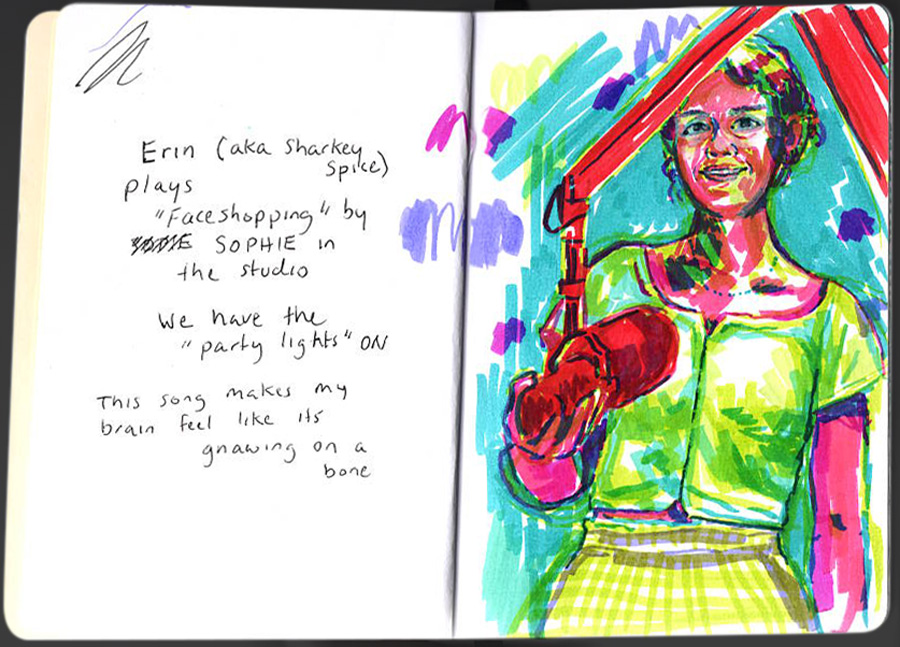 Erin (aka Sharkey
Spice)
plays
"Faceshopping" by
SOPHIE in
the studio
We have the
"party lights" ON
This song makes my
brain feel like its
gnawing on a
bone